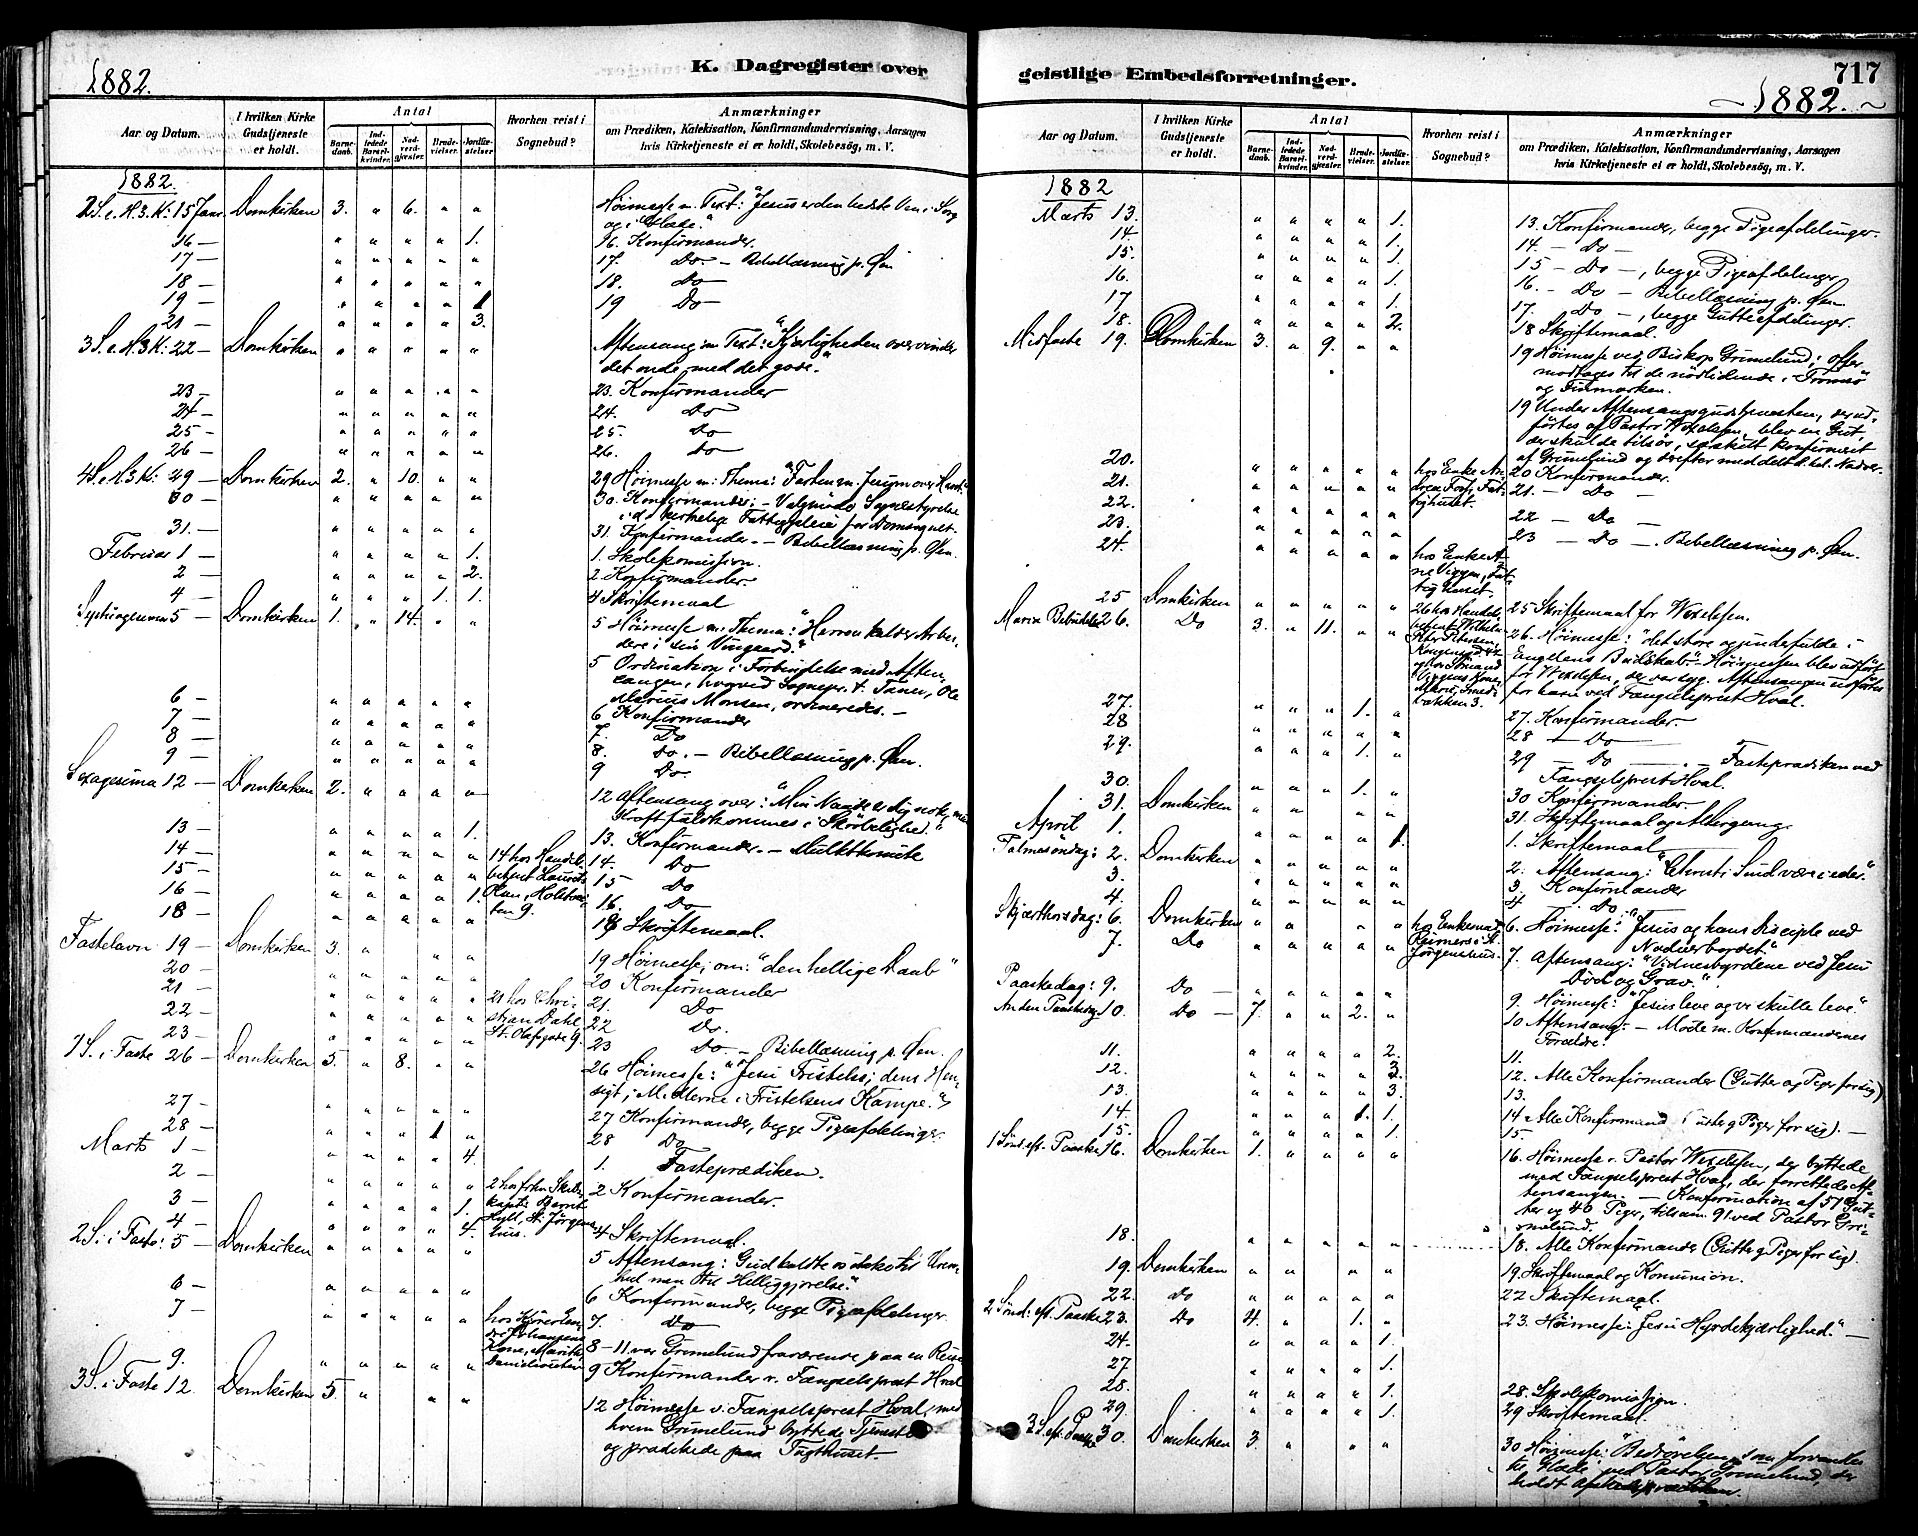 1882.
K. Dagregister over
Aar og Datum.
I hvilken Kirke Gudstjeneste er holdt.
Antal
Barnedaab.
Indledede Barselkvinder.
Nadverdgjester.
Brudevielser.
Jordfæstelser.
Hvorhen reist i Sognebud?
Anmærkninger
om Prædiken, Katekisation, Konfirmandundervisning, Aarsagen
hvis Kirketjeneste ei er holdt, Skolebesög, m. V.
1882.
2 S. e. H. 3. K: 15 Janr Domkirken 3. " 6. " " Høimesse m. Text: "Jesus er den bedste Ven i Sorg
og i Glæde."
16 — " " " " 1. 16. Konfirmander.
17 — " " " " " 17. Do. — Bibellæsning p. Øen
18 — " " " " " 18. Do
19 — " " " " 1 19 Do
21 — " " " " 3.
3 S. e. H3K: 22 — Domkirken " " " " " Aftensang m Text: "Kjærligheden overvinder
det onde med det gode."
23 — " " " " " 23. Konfirmander
24 — " " " " " 24. Do
25 — " " " " " 25. Do
26 — " " " " " 26. Do
4 S. e. H3K: 29 — Domkirken 2. " 10. " " 29 Høimesse m: Thema:
30 — " " " " " 30. Konfirmander; — Valgmøde
i d. kirkelige Fattigpleie for Domsognet.
31. — " " " " " 31. Konfirmander. — Bibellæsning p. Øen.
Februar 1 — " " " " 1. 1. Skolekomission.
2 — " " " " 2. 2 Konfirmander
4 — " " " 1. 1. 4 Skriftemaal
Septuagesima 5 — Domkirken 1. " 14 " " 5 Høimesse m. Thema: "Herren kalder Arbei-
dere i sin Vingaard."
5 Ordination i Forbindelse med Aften-
sangen, hvorved Sognepr. t. Tanen, Ole
Marius Monsen, ordineredes. —
6 — " " " " " 6 Konfirmander
7 — " " " " " 7. Do
8 — " " " " " 8. Do. — Bibellæsning p. Øen.
9 — " " " " " 9 Do
Sexagesima 12 — Domkirken 2. " " " " 12 Aftensang over: "Min Naade er dig nok, min
Kraft fuldkommes i Skrøbelighed."
13 — " " " " 1. 13. Konfirmander. —
14 — " " " " " 14 hos Handels- 14. Do
15 — " " " " " betjent Laurits 15 Do
16 — " " " " 1. Olsen, 16. Do
18 — " " " " " ten 9. 18 Skriftemaal.
Fastelavn 19 — Domkirken 3. " " " 19 Høimesse; om: "den hellige Daab"
20 — " " " " " 20 Konfirmander
21 — " " " " " 21 hos Chri- 21. Do
22 — " " " " " stian Dahl 22 Do.
23 — " " " " " St. Olafsgade 9. 23 Do. — Bibellæsning p. Øen.
1 S. i Faste 26 — Domkirken 5. " 8. " " 26 Høimesse: "Jesu Fristelse; dens Hen-
sigt; Midlerne i Fristelsens Kampe."
27 — " " " " " 27 Konfirmander, begge Pigeafdelinger.
28 — " " " 1 " 28 Do
Marts 1 — " " " " 4. 1. Fasteprædiken.
2 — " " " " " 2 hos 2 Konfirmander.
3 — " " " " 1.
4 — " " " " 4. 4 Skriftemaal.
2 S. i Faste: 5 — Domkirken " " " " " 5 Aftensang: Gud kaldte os ikke til Uren-
hed men til Helliggjørelse."
6 — " " " " " 6 Konfirmander, begge Pigeafdelinger
7 — " " " " " hos 7. Do
8 — 11. var Grimelund fraværende paa en Reise
9. " " " " " Danielsdatter 9 Konfirmander v. Fængselsprest Hval
3 S. i Faste 12 Domkirken 5. " " " 12 Høimesse v. Fængselsprest Hval, med
hvem Grimelund byttede Tjeneste
og prædikede paa Tugthuset.
geistlige Embedsforretninger.
717
1882.
Aar og Datum.
I hvilken Kirke Gudstjeneste er holdt.
Antal
Barnedaab.
Indledede Barselkvinder.
Nadverdgjester.
Brudevielser.
Jordfæstelser.
Hvorhen reist i Sognebud?
Anmærkninger
om Prædiken, Katekisation, Konfirmandundervisning, Aarsagen
hvis Kirketjeneste ei er holdt, Skolebesög, m. V.
1882
Marts 13. " " " " 1. 13. Konfirmander, begge Pigeafdelinger.
14. " " " " 1. 14. — Do —
15. " " " " 1. 15 — Do —, begge Pigeafdelinger
16. " " " " 1. 16. — Do — Bibellæsning p. Øen
17 " " " " 1. 17. — Do —, begge Gutteafdelinger.
18. " " " " 2. 18 Skriftemaal.
Midfaste 19. Domkirken 3. " 9. " " 19 Høimesse ved Biskop Grimelund; Offer
modtages til de nødlidende i Tromsø
og Finmarken.
19 Under Aftensangsgudstjenesten, der ud-
førtes af Pastor Wexelsen, blev en Gut,
der skulde tilsøs, særskilt konfirmeret
af Grimelund og derefter meddelt d. hel. Nadver.
20. " " " " " hos Enke 20 Konfirmander.
21. " " " " " 21. — Do —
22. " " " " " 22 — Do —
23. " " " " " 23 — Do —. Bibellæsning p. Øen.
24. " " " " " hos Enke
25 Domkirken " " " " " 25 Skriftemaal for Wexelsen.
Mariæ Bebudelse 26. Do 3. " 11. " " 26. Høimesse: "det store og undefulde i
Engelens Budskab." Høimessen blev udført
for Wexelsen, der var syg. Aftensangen udførtes
for ham ved Fængselsprest Hval.
27. " " " 1. " 27. Konfirmander.
28 " " " " " 28 — Do
29. " " " 1. " 29 Do — Fasteprædiken ved
Fængselsprest Hval.
30. " " " 1. " 30 Konfirmander.
31. Domkirken " " " " " 31. Skriftemaal og Altergang.
April 1. " " " " 1. 1. Skriftemaal
Palmesöndag: 2. Domkirken " " " " " 2. Aftensang: "Christi Sind være i eder."
3. " " " " " 3. Konfirmander
4. " " " " " 4 Do.
Skjærthorsdag: 6. Domkirken " " " " hos Enkemad. 6. Høimesse: "Jesus og hans Disciple ved
Nadverbordet."
7. Do " " " " " 7. Aftensang: "Vidnesbyrdene ved Jesu
Död og Grav."
Paaskedag: 9. Do — " " " " " 9. Høimesse: "Jesus leve og vi skulle leve."
Anden Paaskedag 10. Do — 7. " " 2. " 10 Aftensang. — Møde m. Konfirmandernes
Forældre.
11. " " " " 2. 11.
12. " " " " 3. 12. Alle Konfirmander (Gutter og Piger for sig)
13. " " " " 3. 13.
14. " " " 1. 1. 14 Alle Konfirmand (utter og Piger for sig). —
15. " " " " 1. 15 —
1 Sönd. eft. Paaske 16. Domkirken 1. " " " " 16. Høimesse v. Pastor Wexelsen, der byttede
med Fængselsprest Hval, der forrettede Af-
tensangen. — Konfirmation af 51 Gut-
ter og 40 Piger, tilsam. 91 ved Pastor Gri-
melund.
18. " " " " " 18. Alle Konfirmander (Gutter og Piger for sig).
19. Domkirken " " " " 19. Skriftemaal og Komunion.
22. Do " " " " " 22 Skriftemaal.
2 Sönd. eft. Paaske 23. Do 4. " " 1. " 23. Høimesse: Jesu Hyrdekjærlighed." —
24. " " " " 1.
27 " " " " 1.
28. " " " " 1. 28. Skolekomission.
29 " " " " 1. 29 Skriftemaal.
3 S. eft. Paaske 30. Domkirken 3. " " " 30 Høimesse: "Bedrøvelsen som forvandles
til Glæde", ved Pastor Grimelund, der
holdt